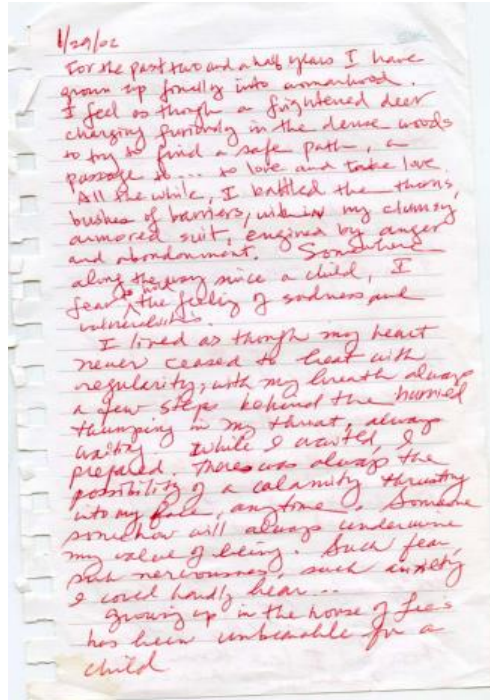 1/29/02
For the past two and a half years I have
grown up finally into womanhood.
I feel as though a frightened deer
charging furiously in the dense woods
to try to find a safe path, a
passage to ... to love and take love.
All the while, I battled the thorns,
bushes of barriers, within my clumsy
armored suit, engined by anger
and abandonment. Somewhere
along the way since a child, I
fear to hold the feeling of sadness and
vulnerabilities.
I lived as though my heart
never ceased to beat with
regularity, with my breath always
a few steps behind the hurried
thumping in my throat, always
waiting. While I waited, I
prepared. There was always the
possibility of a calamity thrusting
into my face, anytime. Someone
somehow will always undermine
my value of being. Such fear,
such nervousness, such anxiety
I could hardly hear...
growing up in the house of
has been unbearable for a
child